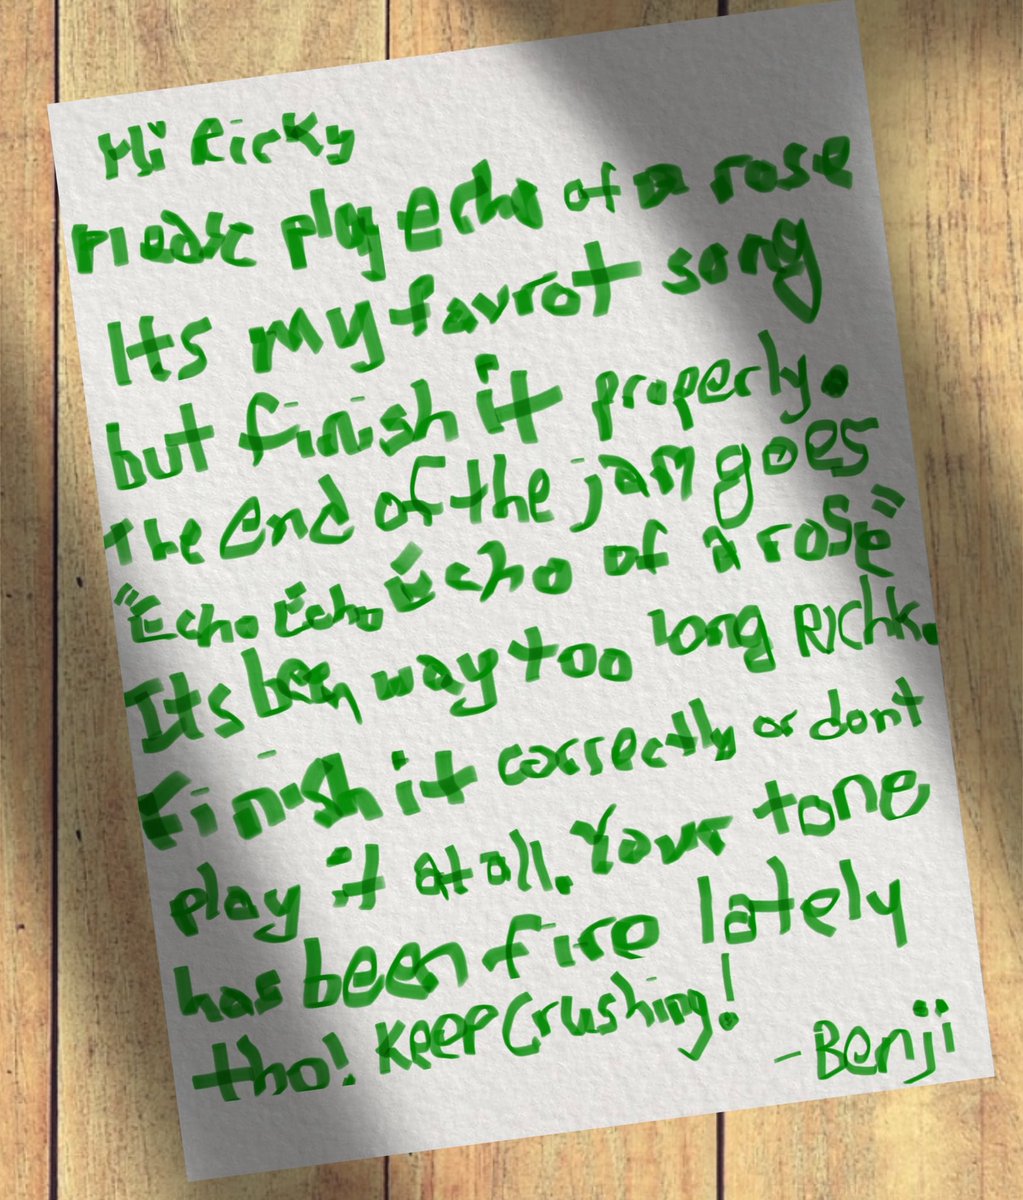 Hi Ricky
Please play echo of a rose
Its my favrot song
but finish it properly.
the end of the jam goes
"Echo Echo Echo of a rose"
Its been way too long RIChk.
Finish it correctly or dont
play it at all. Your tone
has been fire lately
tho! Keep Crushing!
- Benji